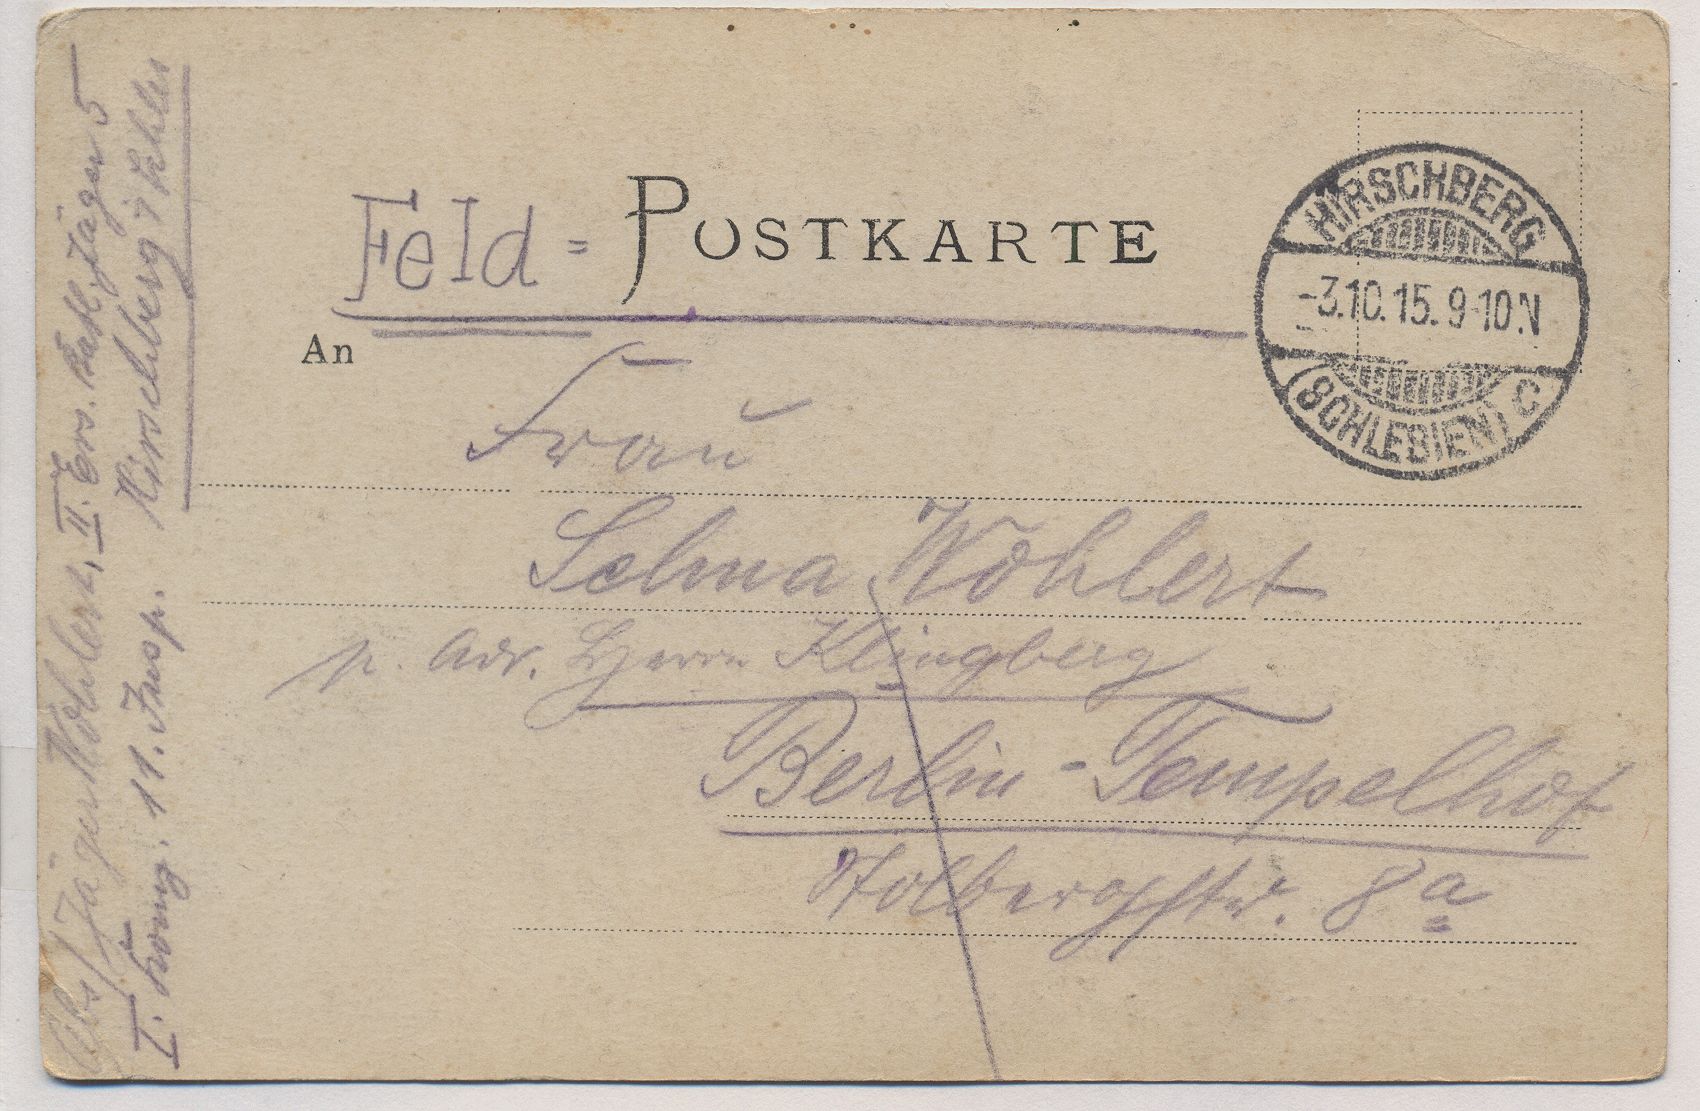 Feld = POSTKARTE
HIRSCHBERG
-3.10.15. 9-10.N
(SCHLESIEN) C
An
Frau
Selma Wohlert
p. Adr. Herrn Klingberg
Berlin-Tempelhof
Stolbergstr. 8a
Abs/ Jäger Wohlert, II. Ers. Batl. Jäger 5
I. Komp. 11. Insp. Hirschberg i/Schles